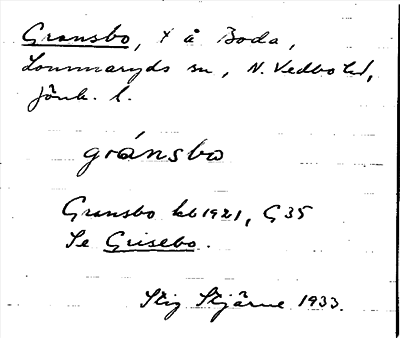 Gransbo, x å Boda,
Lommaryds sn, N. Vedbo hd,
Jönk. l.
gránsbo
Gransbo kb 1921, G 35
Se Grisebo.
Stig Stjärne 1933.